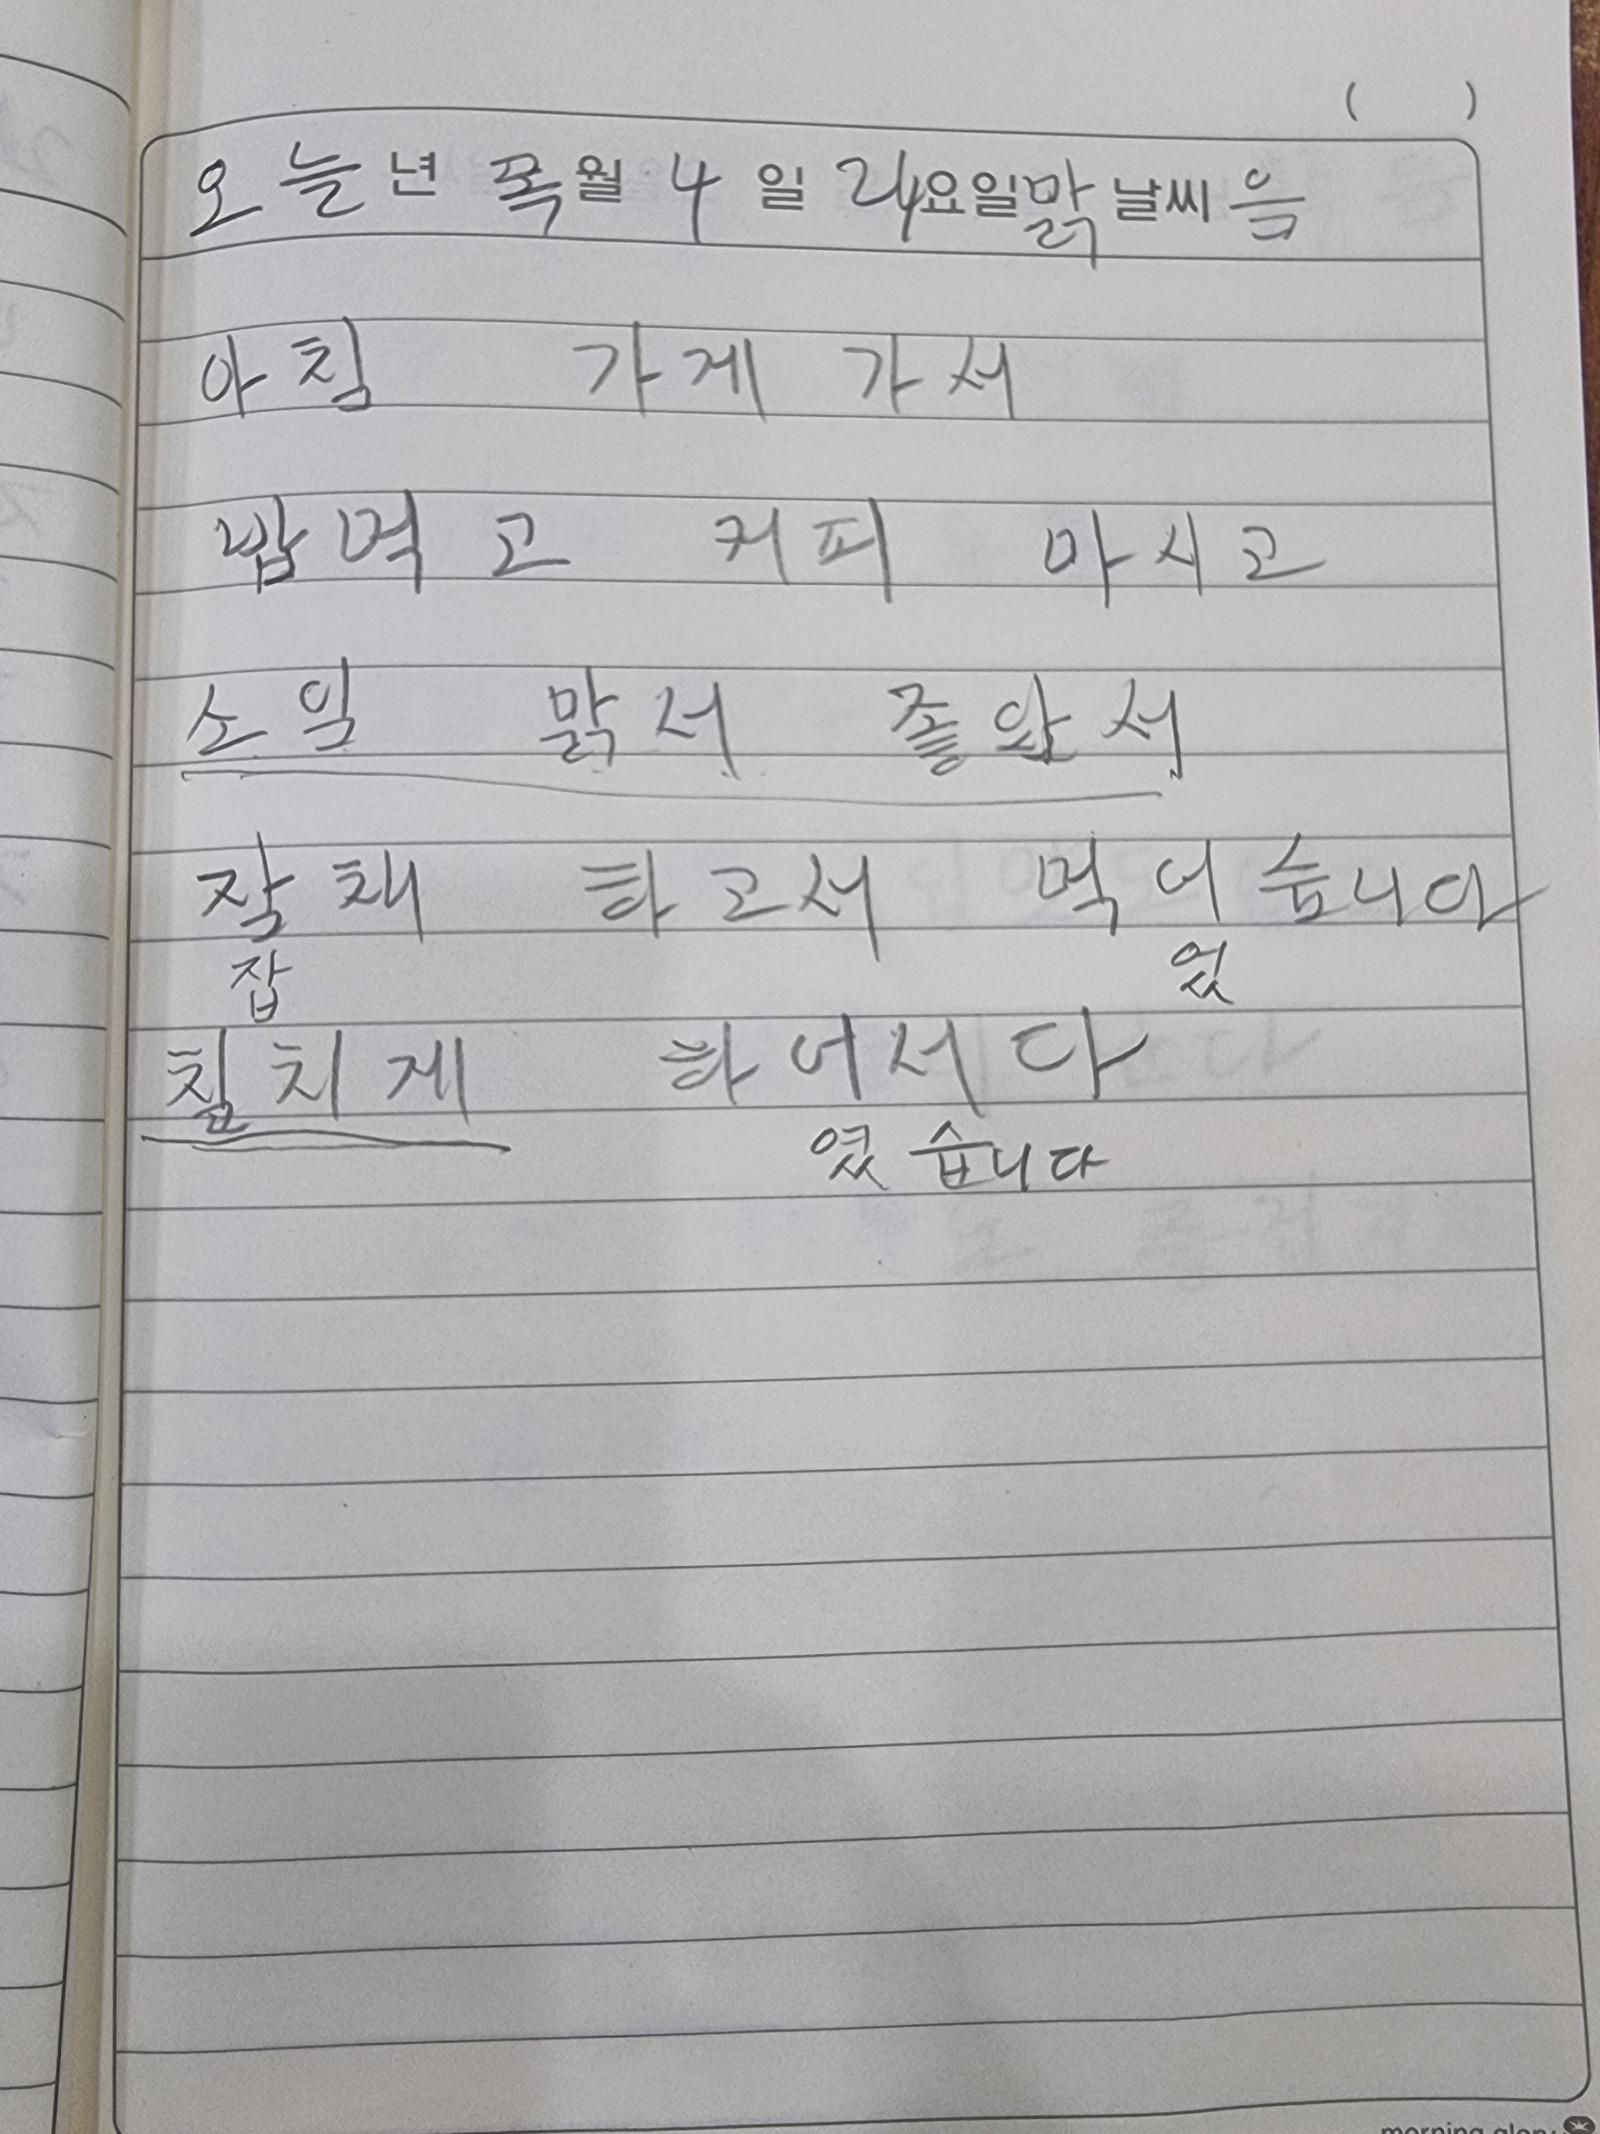 ( )
오늘년 목월 4 일 24요일맑날씨음
아침 가게 가서
밥먹고 커피 마시고
소임 맑서 좋았서
작채 하고서 먹어습니다
잡 었
칠치게 하어서다
였습니다
morning glory